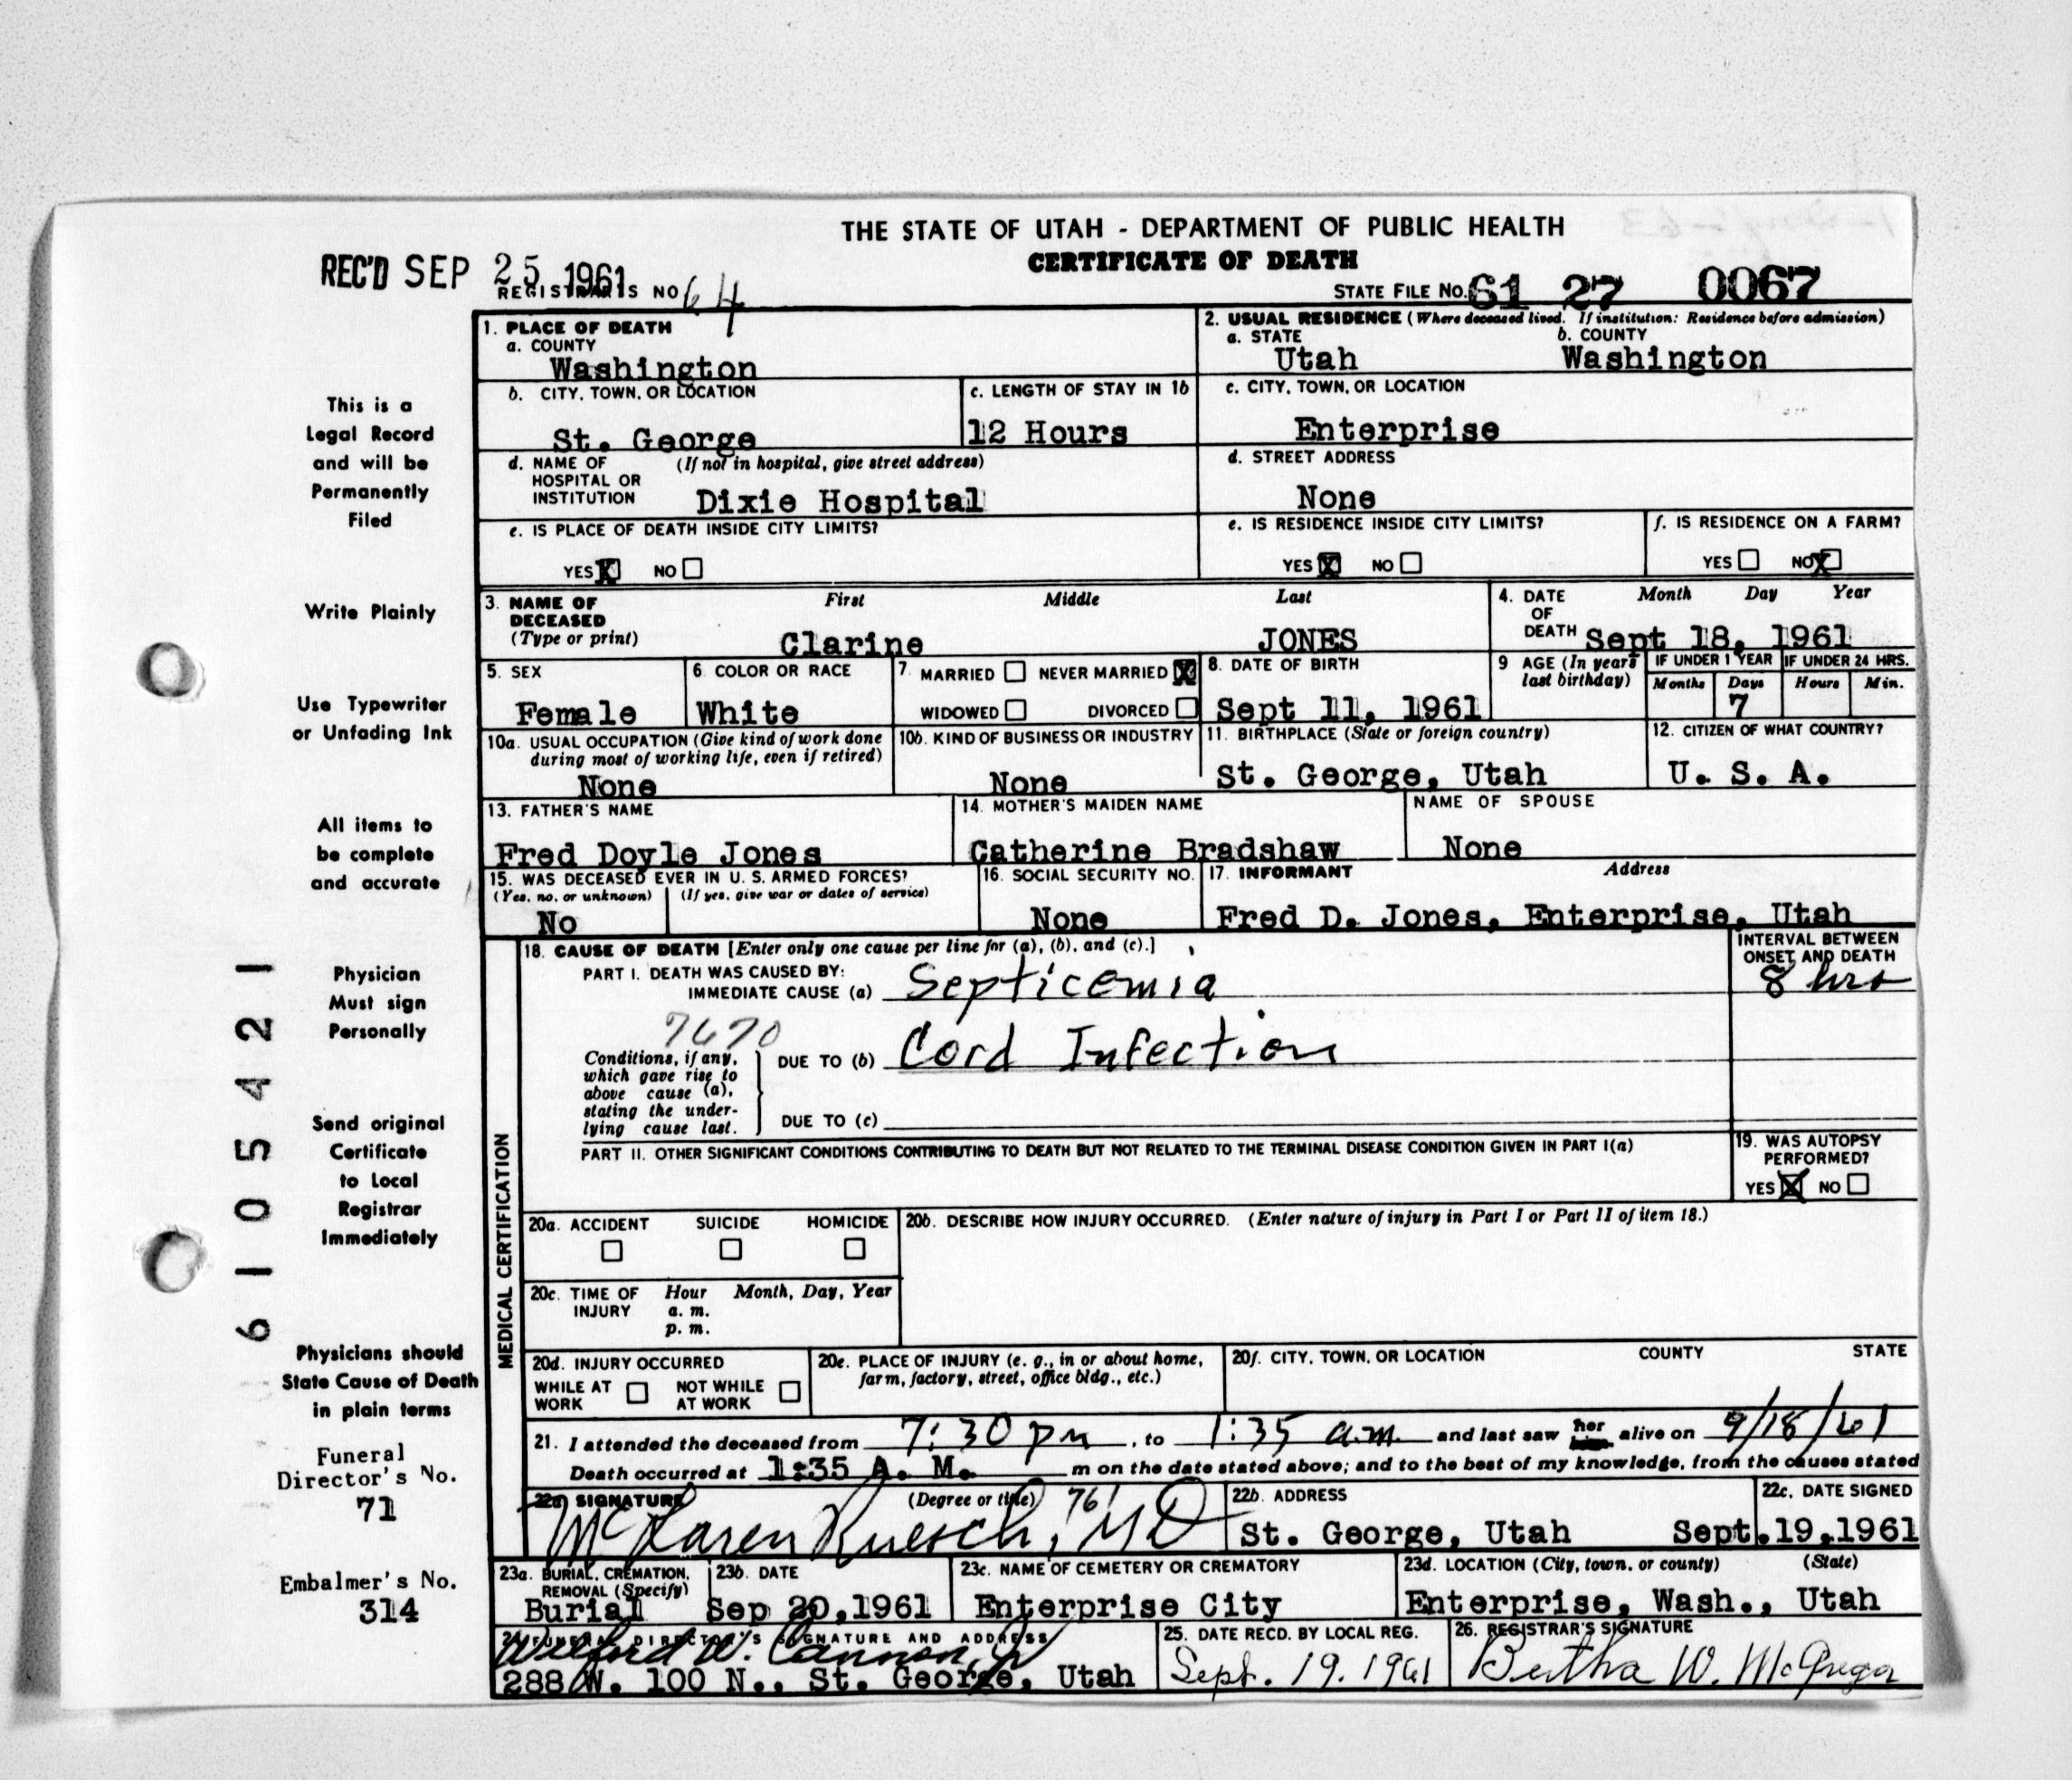 THE STATE OF UTAH - DEPARTMENT OF PUBLIC HEALTH
CERTIFICATE OF DEATH
REC'D SEP 25 1961
REGISTRAR'S NO 64
STATE FILE NO. 61 27 0067
This is a
Legal Record
and will be
Permanently
Filed
Write Plainly
Use Typewriter
or Unfading Ink
All items to
be complete
and accurate
Physician
Must sign
Personally
Send original
Certificate
to Local
Registrar
Immediately
Physicians should
State Cause of Death
in plain terms
Funeral
Director's No.
71
Embalmer's No.
314
6105421
1. PLACE OF DEATH
a. COUNTY
Washington
b. CITY, TOWN, OR LOCATION
St. George
c. LENGTH OF STAY IN 1b
12 Hours
d. NAME OF (If not in hospital, give street address)
HOSPITAL OR
INSTITUTION Dixie Hospital
e. IS PLACE OF DEATH INSIDE CITY LIMITS?
YES X NO
2. USUAL RESIDENCE (Where deceased lived. If institution: Residence before admission)
a. STATE b. COUNTY
Utah Washington
c. CITY, TOWN, OR LOCATION
Enterprise
d. STREET ADDRESS
None
e. IS RESIDENCE INSIDE CITY LIMITS?
YES X NO
f. IS RESIDENCE ON A FARM?
YES NO X
3. NAME OF First Middle Last
DECEASED
(Type or print) Clarine JONES
4. DATE Month Day Year
OF
DEATH Sept 18, 1961
5. SEX
Female
6. COLOR OR RACE
White
7. MARRIED NEVER MARRIED X
WIDOWED DIVORCED
8. DATE OF BIRTH
Sept 11, 1961
9 AGE (In years
last birthday)
IF UNDER 1 YEAR IF UNDER 24 HRS.
Months Days Hours Min.
7
10a. USUAL OCCUPATION (Give kind of work done
during most of working life, even if retired)
None
10b. KIND OF BUSINESS OR INDUSTRY
None
11. BIRTHPLACE (State or foreign country)
St. George, Utah
12. CITIZEN OF WHAT COUNTRY?
U. S. A.
13. FATHER'S NAME
Fred Doyle Jones
14. MOTHER'S MAIDEN NAME
Catherine Bradshaw
NAME OF SPOUSE
None
15. WAS DECEASED EVER IN U. S. ARMED FORCES?
(Yes, no, or unknown) (If yes, give war or dates of service)
No
16. SOCIAL SECURITY NO.
None
17. INFORMANT Address
Fred D. Jones, Enterprise, Utah
MEDICAL CERTIFICATION
18. CAUSE OF DEATH [Enter only one cause per line for (a), (b), and (c).]
PART I. DEATH WAS CAUSED BY:
IMMEDIATE CAUSE (a) Septicemia
INTERVAL BETWEEN
ONSET AND DEATH
8 hrs
7670
Conditions, if any,
which gave rise to
above cause (a),
stating the under-
lying cause last.
DUE TO (b) Cord Infection
DUE TO (c)
PART II. OTHER SIGNIFICANT CONDITIONS CONTRIBUTING TO DEATH BUT NOT RELATED TO THE TERMINAL DISEASE CONDITION GIVEN IN PART I(a)
19. WAS AUTOPSY
PERFORMED?
YES X NO
20a. ACCIDENT SUICIDE HOMICIDE
20b. DESCRIBE HOW INJURY OCCURRED. (Enter nature of injury in Part I or Part II of item 18.)
20c. TIME OF Hour Month, Day, Year
INJURY a. m.
p. m.
20d. INJURY OCCURRED
WHILE AT NOT WHILE
WORK AT WORK
20e. PLACE OF INJURY (e. g., in or about home,
farm, factory, street, office bldg., etc.)
20f. CITY, TOWN, OR LOCATION COUNTY STATE
21. I attended the deceased from 7:30 pm, to 1:35 a.m. and last saw her alive on 9/18/61
Death occurred at 1:35 A. M. m on the date stated above; and to the best of my knowledge, from the causes stated
22a SIGNATURE (Degree or title) 761
McLaren Ruesch, MD
22b. ADDRESS
St. George, Utah
22c. DATE SIGNED
Sept.19,1961
23a. BURIAL, CREMATION,
REMOVAL (Specify)
Burial
23b. DATE
Sep 20,1961
23c. NAME OF CEMETERY OR CREMATORY
Enterprise City
23d. LOCATION (City, town, or county) (State)
Enterprise, Wash., Utah
24. FUNERAL DIRECTOR'S SIGNATURE AND ADDRESS
Wilford W. Cannon, Jr
288 W. 100 N., St. George, Utah
25. DATE RECD. BY LOCAL REG.
Sept. 19. 1961
26. REGISTRAR'S SIGNATURE
Bertha W. McGregor